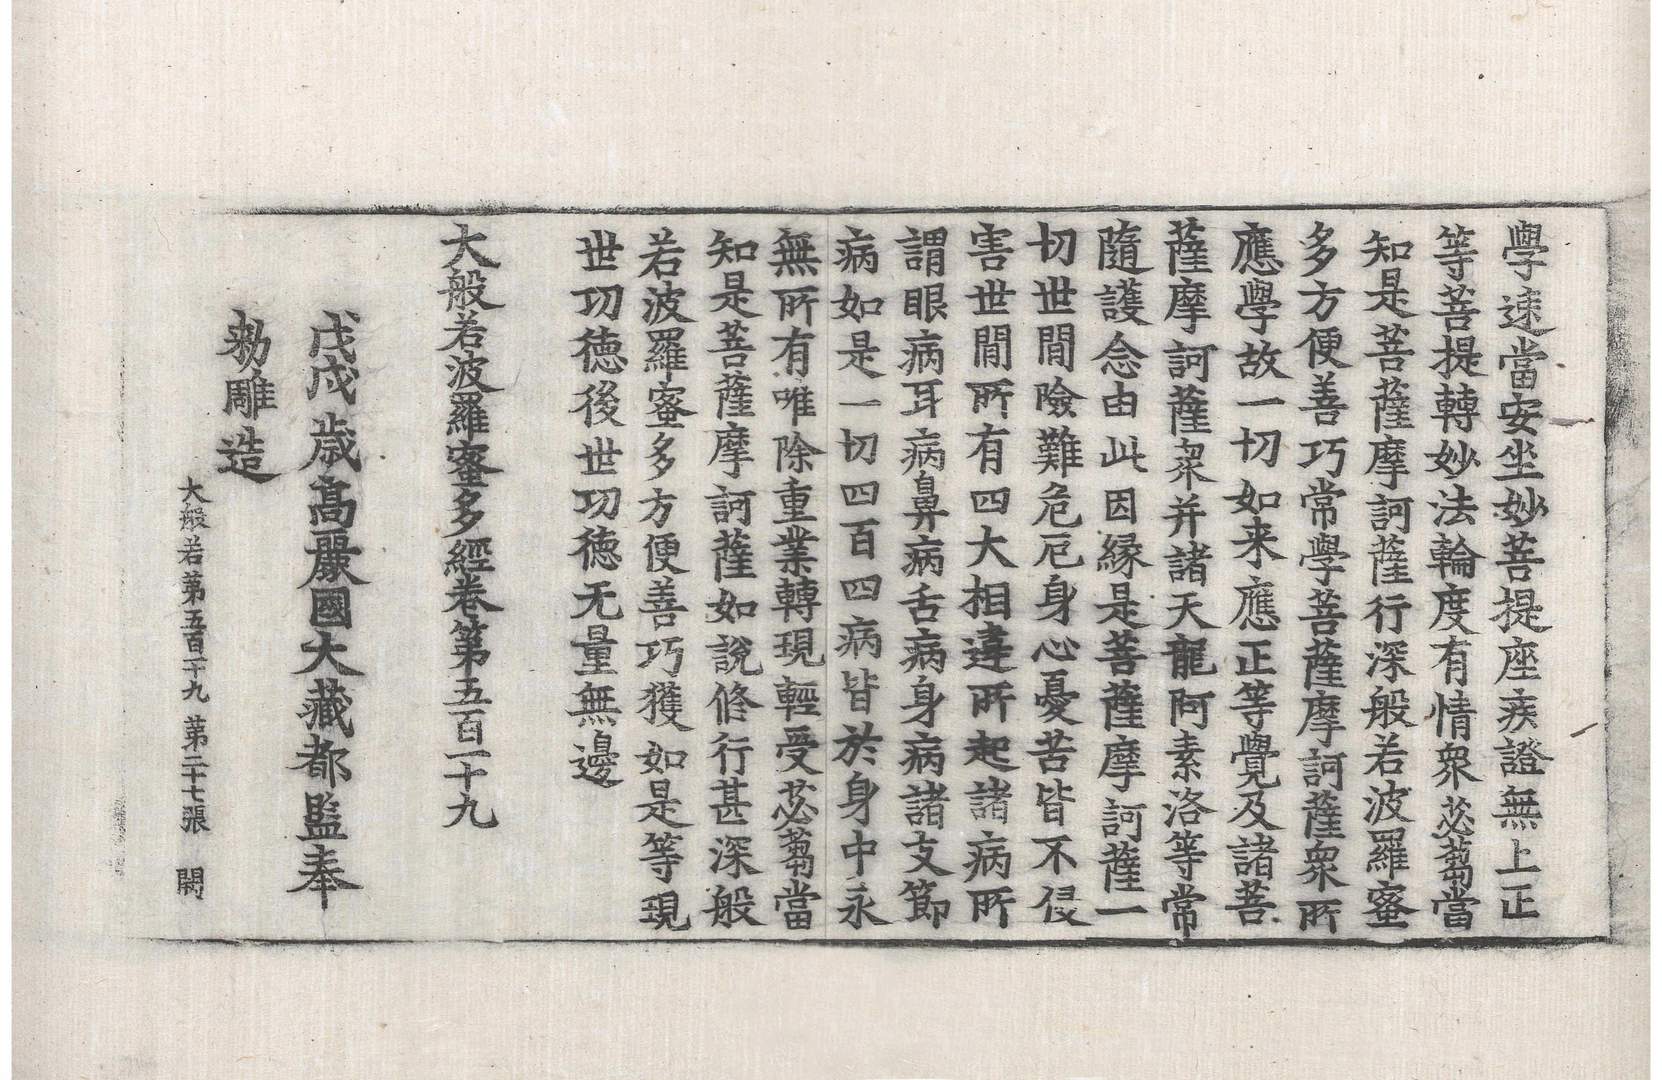 學速當安坐妙菩提座疾證無上正
等菩提轉妙法輪度有情衆苾芻當
知是菩薩摩訶薩行深般若波羅蜜
多方便善巧常學菩薩摩訶薩衆所
應學故一切如来應正等覺及諸菩
薩摩訶薩衆并諸天龍阿素洛等常
隨護念由此因緣是菩薩摩訶薩一
切世間險難危厄身心憂苦皆不侵
害世間所有四大相違所起諸病所
謂眼病耳病鼻病舌病身病諸支節
病如是一切四百四病皆於身中永
無所有唯除重業轉現輕受苾芻當
知是菩薩摩訶薩如說修行甚深般
若波羅蜜多方便善巧獲如是等現
世功德後世功德无量無邊
大般若波羅蜜多經卷第五百一十九
戊戌歲高麗國大藏都監奉
勑雕造
大般若第五百一十九 第二十七張 闕